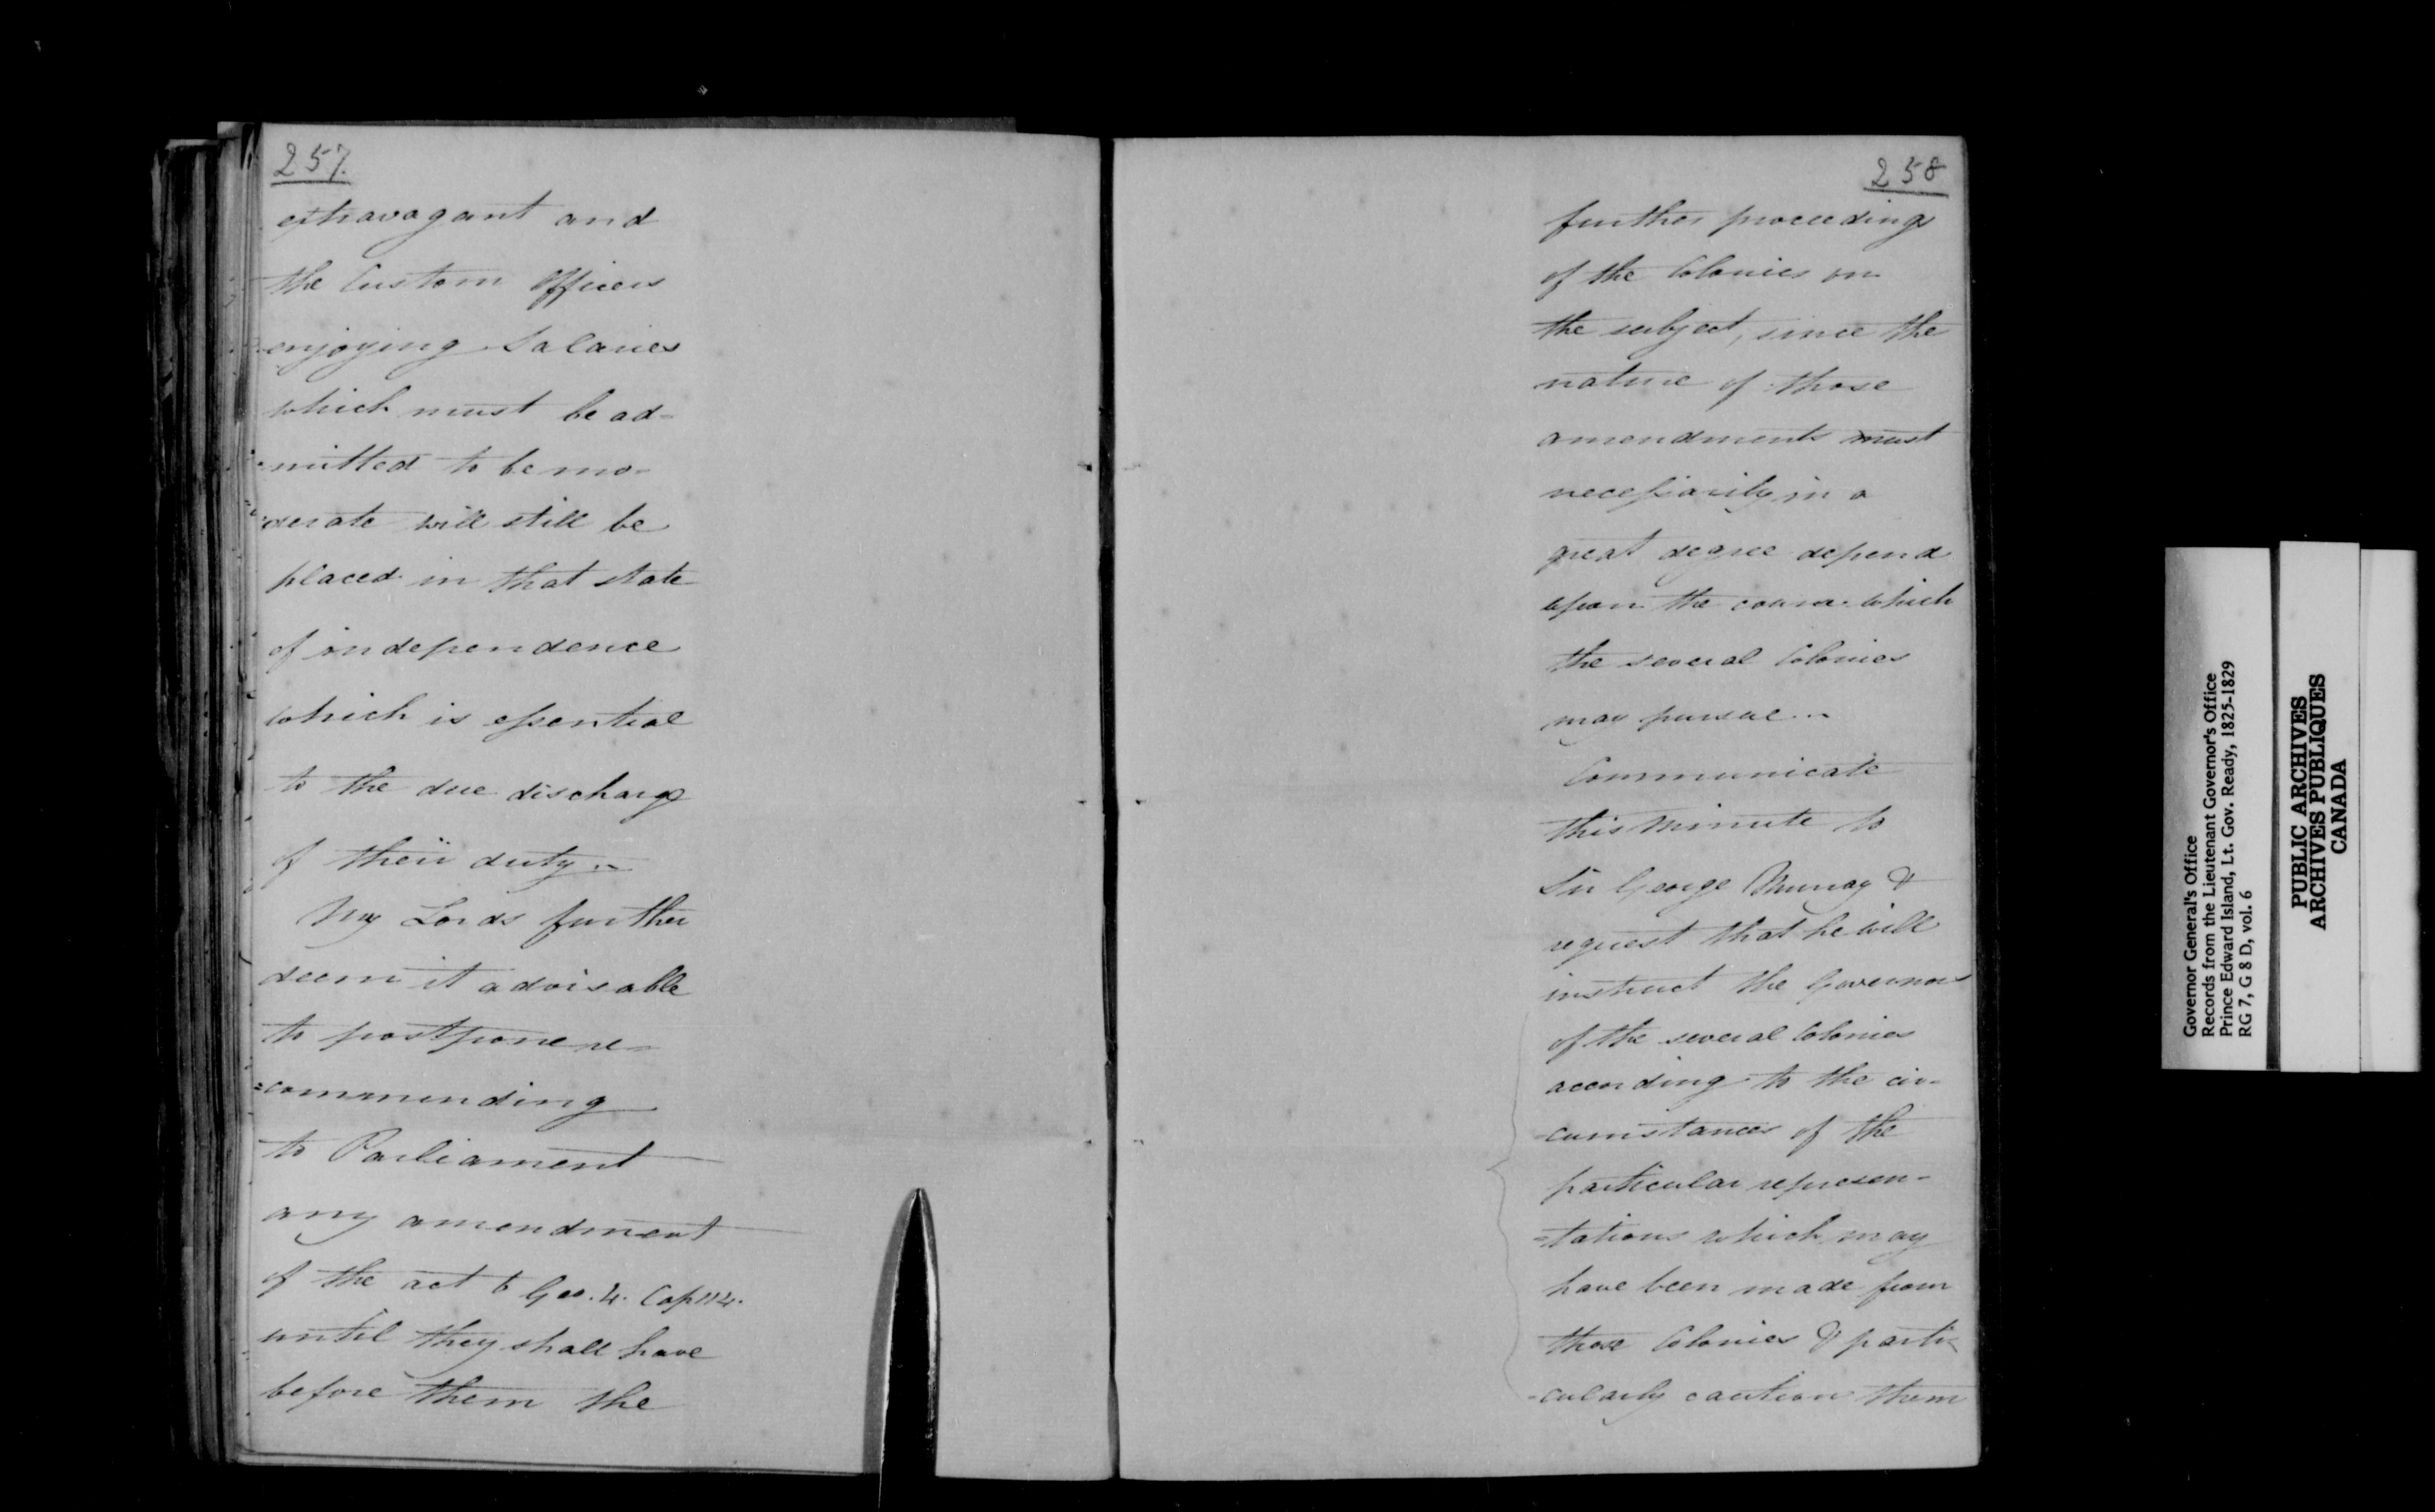 257.
extravagant and
the Custom Officers
enjoying Salaries
which must be ad-
-mitted to be mo-
-derate will still be
placed in that state
of independence
which is essential
to the due discharge
of their duty.-
My Lords further
deem it advisable
to postpone re-
=commending
to Parliament
any amendment
of the act 6 Geo. 4. Cap 114.
until they shall have
before them the
258
further proceedings
of the Colonies on
the subject, since the
nature of those
amendments must
necessarily in a
great degree depend
upon the course which
the several Colonies
may pursue.-
Communicate
this Minute to
Sir George Murray &
request that he will
instruct the Governors
of the several Colonies
according to the cir-
-cumstances of the
particular represen-
=tations which may
have been made from
those Colonies & parti-
-cularly caution them
Governor General's Office
Records from the Lieutenant Governor's Office
Prince Edward Island, Lt. Gov. Ready, 1825-1829
RG 7, G 8 D, vol. 6
PUBLIC ARCHIVES
ARCHIVES PUBLIQUES
CANADA